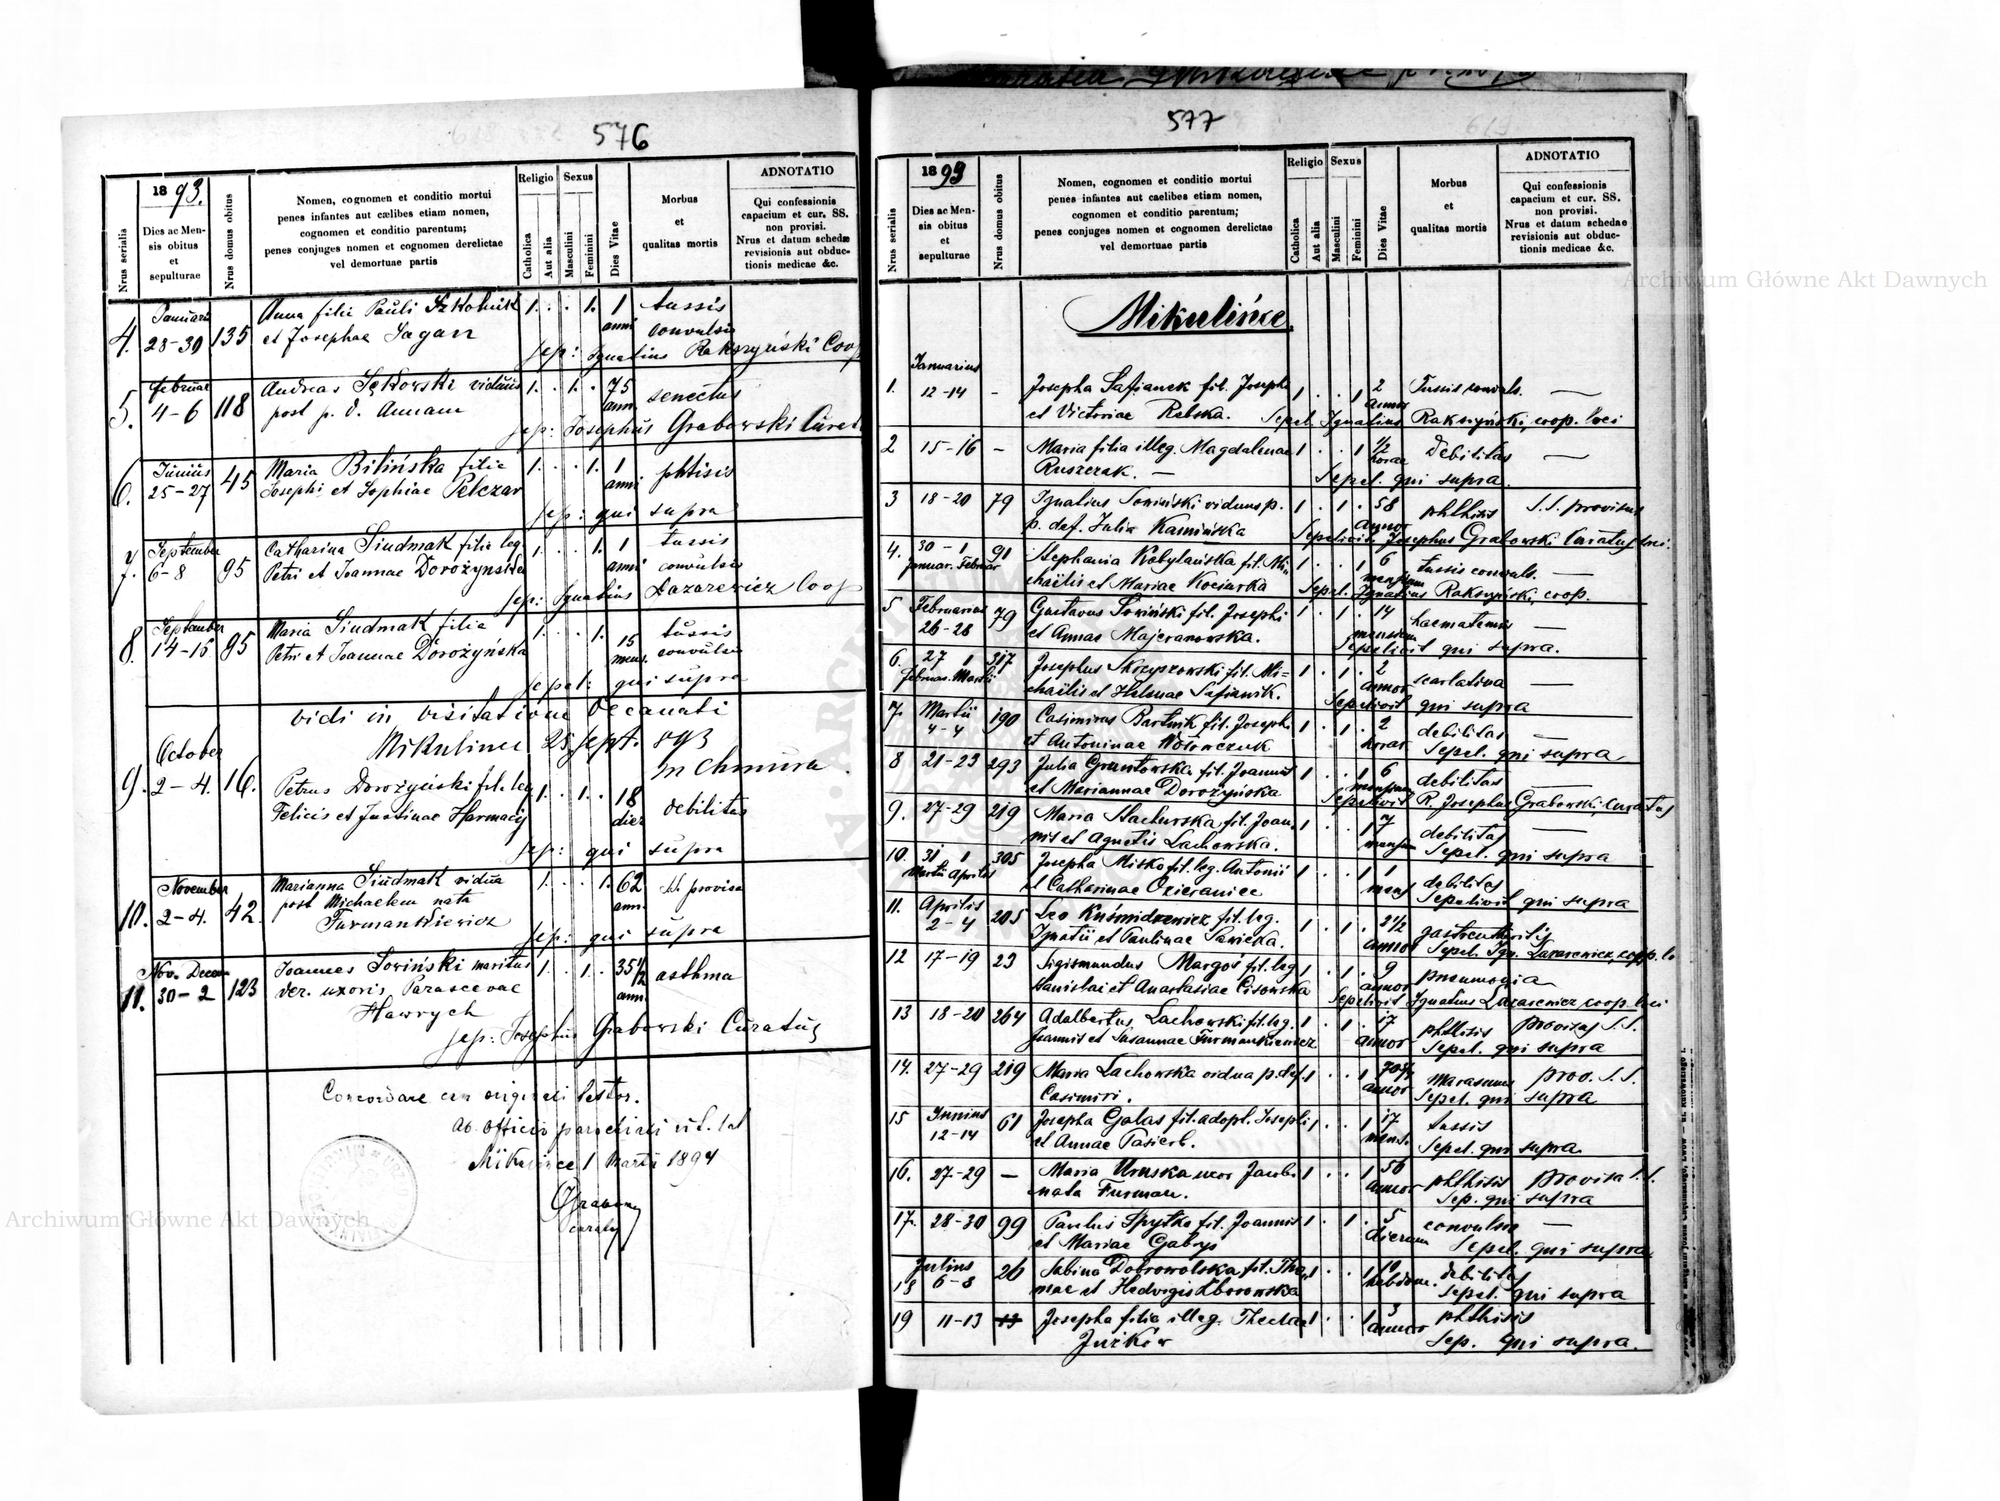 576
1893.
Nrus serialis
Dies ac Mensis obitus et sepulturae
Nrus domus obitus
Nomen, cognomen et conditio mortui
penes infantes aut cælibes etiam nomen,
cognomen et conditio parentum;
penes conjuges nomen et cognomen derelictae
vel demortuae partis
Religio
Catholica
Aut alia
Sexus
Masculini
Feminini
Dies Vitae
Morbus
et
qualitas mortis
ADNOTATIO
Qui confessionis
capacium et cur. SS.
non provisi.
Nrus et datum schedæ
revisionis aut obduc-
tionis medicae &c.
4. Januarii 28-30 135 Anna filia Pauli Szkolnik 1. 1. 1 anni tussis
et Josephae Sagan convulsiv
sep: Ignatius Rakszyński Coop
5. Februar 4-6 118 Andreas Sękowski viduus 1. 1. 75 ann. senectus
post p. d. Annam
sep: Josephus Grabowski Curat
6. Junius 25-27 45 Maria Bilińska filia 1. 1. 1 anni phtisis
Josephi et Sophiae Pelczar
sep: qui supra
7. September 6-8 95 Catharina Siudmak filia leg. 1. 1. 1 anni tussis
Petri et Joannae Dorożynska convulsiv
sep: Ignatius Lazarewicz Coop
8. September 14-16 95 Maria Siudmak filia 1. 1. 15 mens. tussis
Petri et Joannae Dorożyńska convulsiv
sepel: qui supra
vidi in visitatione Decanali
Mikulince 25 sept. 893
M Chmura
9. October 2-4. 16. Petrus Dorożyński fil. leg 1. 1. 18 dier debilitas
Felicis et Justinae Harmacij
sep: qui supra
10. November 2-4. 42. Marianna Siudmak vidua 1. 1. 62 ann. st. provisa
post Michaelem nata
Furmankiewicz
sep: qui supra
11. Nov. Decem 30-2 123 Joannes Sowiński maritus 1. 1. 35 1/2 ann. asthma
der. uxoris Parascevae
Hawrych
sep: Josephus Grabowski Curatus
Concordare cum originali testor.
Ab officio parochiali rit. lat
Mikulince 1 Martii 1894
577
1893
Nrus serialis
Dies ac Men-
sis obitus
et
sepulturae
Nrus domus obitus
Nomen, cognomen et conditio mortui
penes infantes aut caelibes etiam nomen,
cognomen et conditio parentum;
penes conjuges nomen et cognomen derelictae
vel demortuae partis
Religio
Catholica
Aut alia
Sexus
Masculini
Feminini
Dies Vitae
Morbus
et
qualitas mortis
ADNOTATIO
Qui confessionis
capacium et cur. SS.
non provisi.
Nrus et datum schedae
revisionis aut obduc-
tionis medicae &c.
Mikulińce.
1. Januarius 12-14 - Josepha Safianek fil. Josephi 1 . . 1 2 annor Tussis convuls. —
et Victoriae Rebska. Sepel. Ignatius Rakszyński, coop. loci
2 15-16 - Maria filia illeg. Magdalenae 1 . . 1 1/2 horae Debilitas —
Ruszczak. — Sepel. qui supra.
3 18-20 79 Ignatius Sowiński viduus p. 1 . 1 . 58 annor phthisis S.S. provisus
p. def. Julia Kamińska Sepelivit Josephus Grabowski Curatus loci.
4. 30-1 Januar. Februar 91 Stephania Kobylańska fil. Mi- 1 . . 1 6 mensium tussis convuls. —
chaëlis et Mariae Kociarka Sepel. Ignatius Rakszyński, coop.
5 Februarius 26-28 79 Gustavus Sowiński fil. Josephi 1 . 1 . 14 mensium haematemis —
et Annae Majeranowska. Sepelivit qui supra.
6. 27 1 Februar. Martii 317 Josephus Skrzyszowski fil. Mi- 1 . 1 . 2 annor scarlatina —
chaëlis et Helenae Safianik. Sepelivit qui supra
7. Martii 4-4 190 Casimirus Bartnik fil. Josephi 1 . 1 . 2 horar debilitas —
et Antoninae Wołowczuk Sepel. qui supra
8 21-23 293 Julia Gruntowska fil. Joannis 1 . . 1 6 mensium debilitas
et Mariannae Dorożyńska Sepelivit R. Josephus Grabowski, curatus
9. 27-29 219 Maria Stachurska fil. Joan- 1 . . 1 7 mensium debilitas —
nis et Agnetis Lachowska. Sepel. qui supra
10. 31 1 Martii Aprilis 305 Josepha Misko fil. leg. Antonii 1 . . 1 1 mens debilitas
et Catharinae Ozieraniec Sepelivit qui supra
11. Aprilis 2-4 205 Leo Kuśmidrowicz fil. leg. 1 . 1 . 2 1/2 annor gastroenteritis
Ignatii et Paulinae Sawicka. Sepel. Ign. Lazarewicz, coop. lo
12 17-19 23 Sigismundus Margoś fil. leg 1 . 1 . 9 annor pneumogia
Stanislai et Anastasiae Cisowska Sepelivit Ignatius Lazarewicz coop. loci
13 18-20 264 Adalbertus Lachowski fil. leg. 1 . 1 . 17 annor phthisis provisus S.S.
Joannis et Susannae Furmankiewicz Sepel. qui supra
14. 27-29 219 Maria Lachowska vidua p. def. 1 . . 1 annor marasmus prov. S.S.
Casimiri. Sepel. qui supra
15 Junius 12-14 61 Josepha Galas fil. adopt. Josephi 1 . . 1 17 mens. tussis
et Annae Pasierb. Sepel. qui supra
16. 27-29 — Maria Urnska uxor Jacobi 1 . . 1 56 annor phthisis provisa S.S.
nata Furman. Sep. qui supra
17. 28-30 99 Paulus Spytko fil. Joannis 1 . 1 . 5 dierum convulsio —
et Mariae Gabrys Sepel. qui supra
18 Julius 6-8 26 Sabina Dobrowolska fil. Tho- 1 . . 1 10 hebdom. debilitas
mae et Hedvigis Zborowska Sepel. qui supra
19 11-13 13 Josepha filia illeg. Theclae 1 . . 1 3 annor phthisis
Jurków Sep. qui supra.
Archiwum Główne Akt Dawnych
Archiwum Główne Akt Dawnych